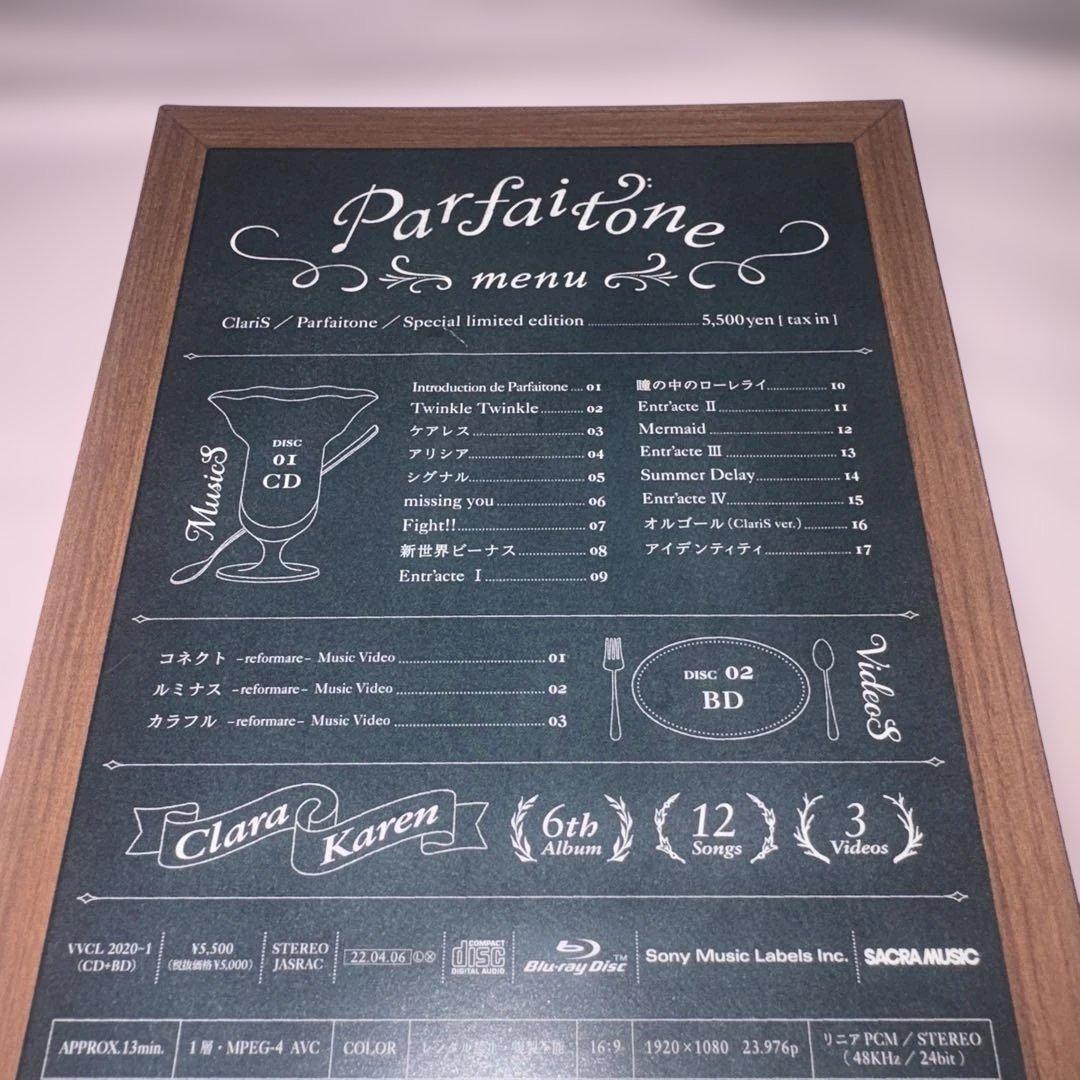 Parfaitone
menu
ClariS／Parfaitone／Special limited edition 5,500yen [ tax in ]
MusicS
DISC
01
CD
Introduction de Parfaitone.... 01
Twinkle Twinkle 02
ケアレス 03
アリシア 04
シグナル 05
missing you 06
Fight!! 07
新世界ビーナス 08
Entr'acte Ⅰ 09
瞳の中のローレライ 10
Entr'acte Ⅱ 11
Mermaid 12
Entr'acte Ⅲ 13
Summer Delay 14
Entr'acte Ⅳ 15
オルゴール（ClariS ver.） 16
アイデンティティ 17
コネクト -reformare- Music Video 01
ルミナス -reformare- Music Video 02
カラフル -reformare- Music Video 03
DISC 02
BD
VideoS
Clara
Karen
6th
Album
12
Songs
3
Videos
VVCL 2020~1
（CD+BD）
¥5,500
（税抜価格¥5,000）
STEREO
JASRAC
22.04.06 Ⓛ Ⓧ
COMPACT
disc
DIGITAL AUDIO
Blu-ray Disc™
Sony Music Labels Inc.
SACRA MUSIC
APPROX.13min.
1層・MPEG-4 AVC
COLOR
16:9
1920×1080 23.976p
リニアPCM / STEREO
（48KHz / 24bit）